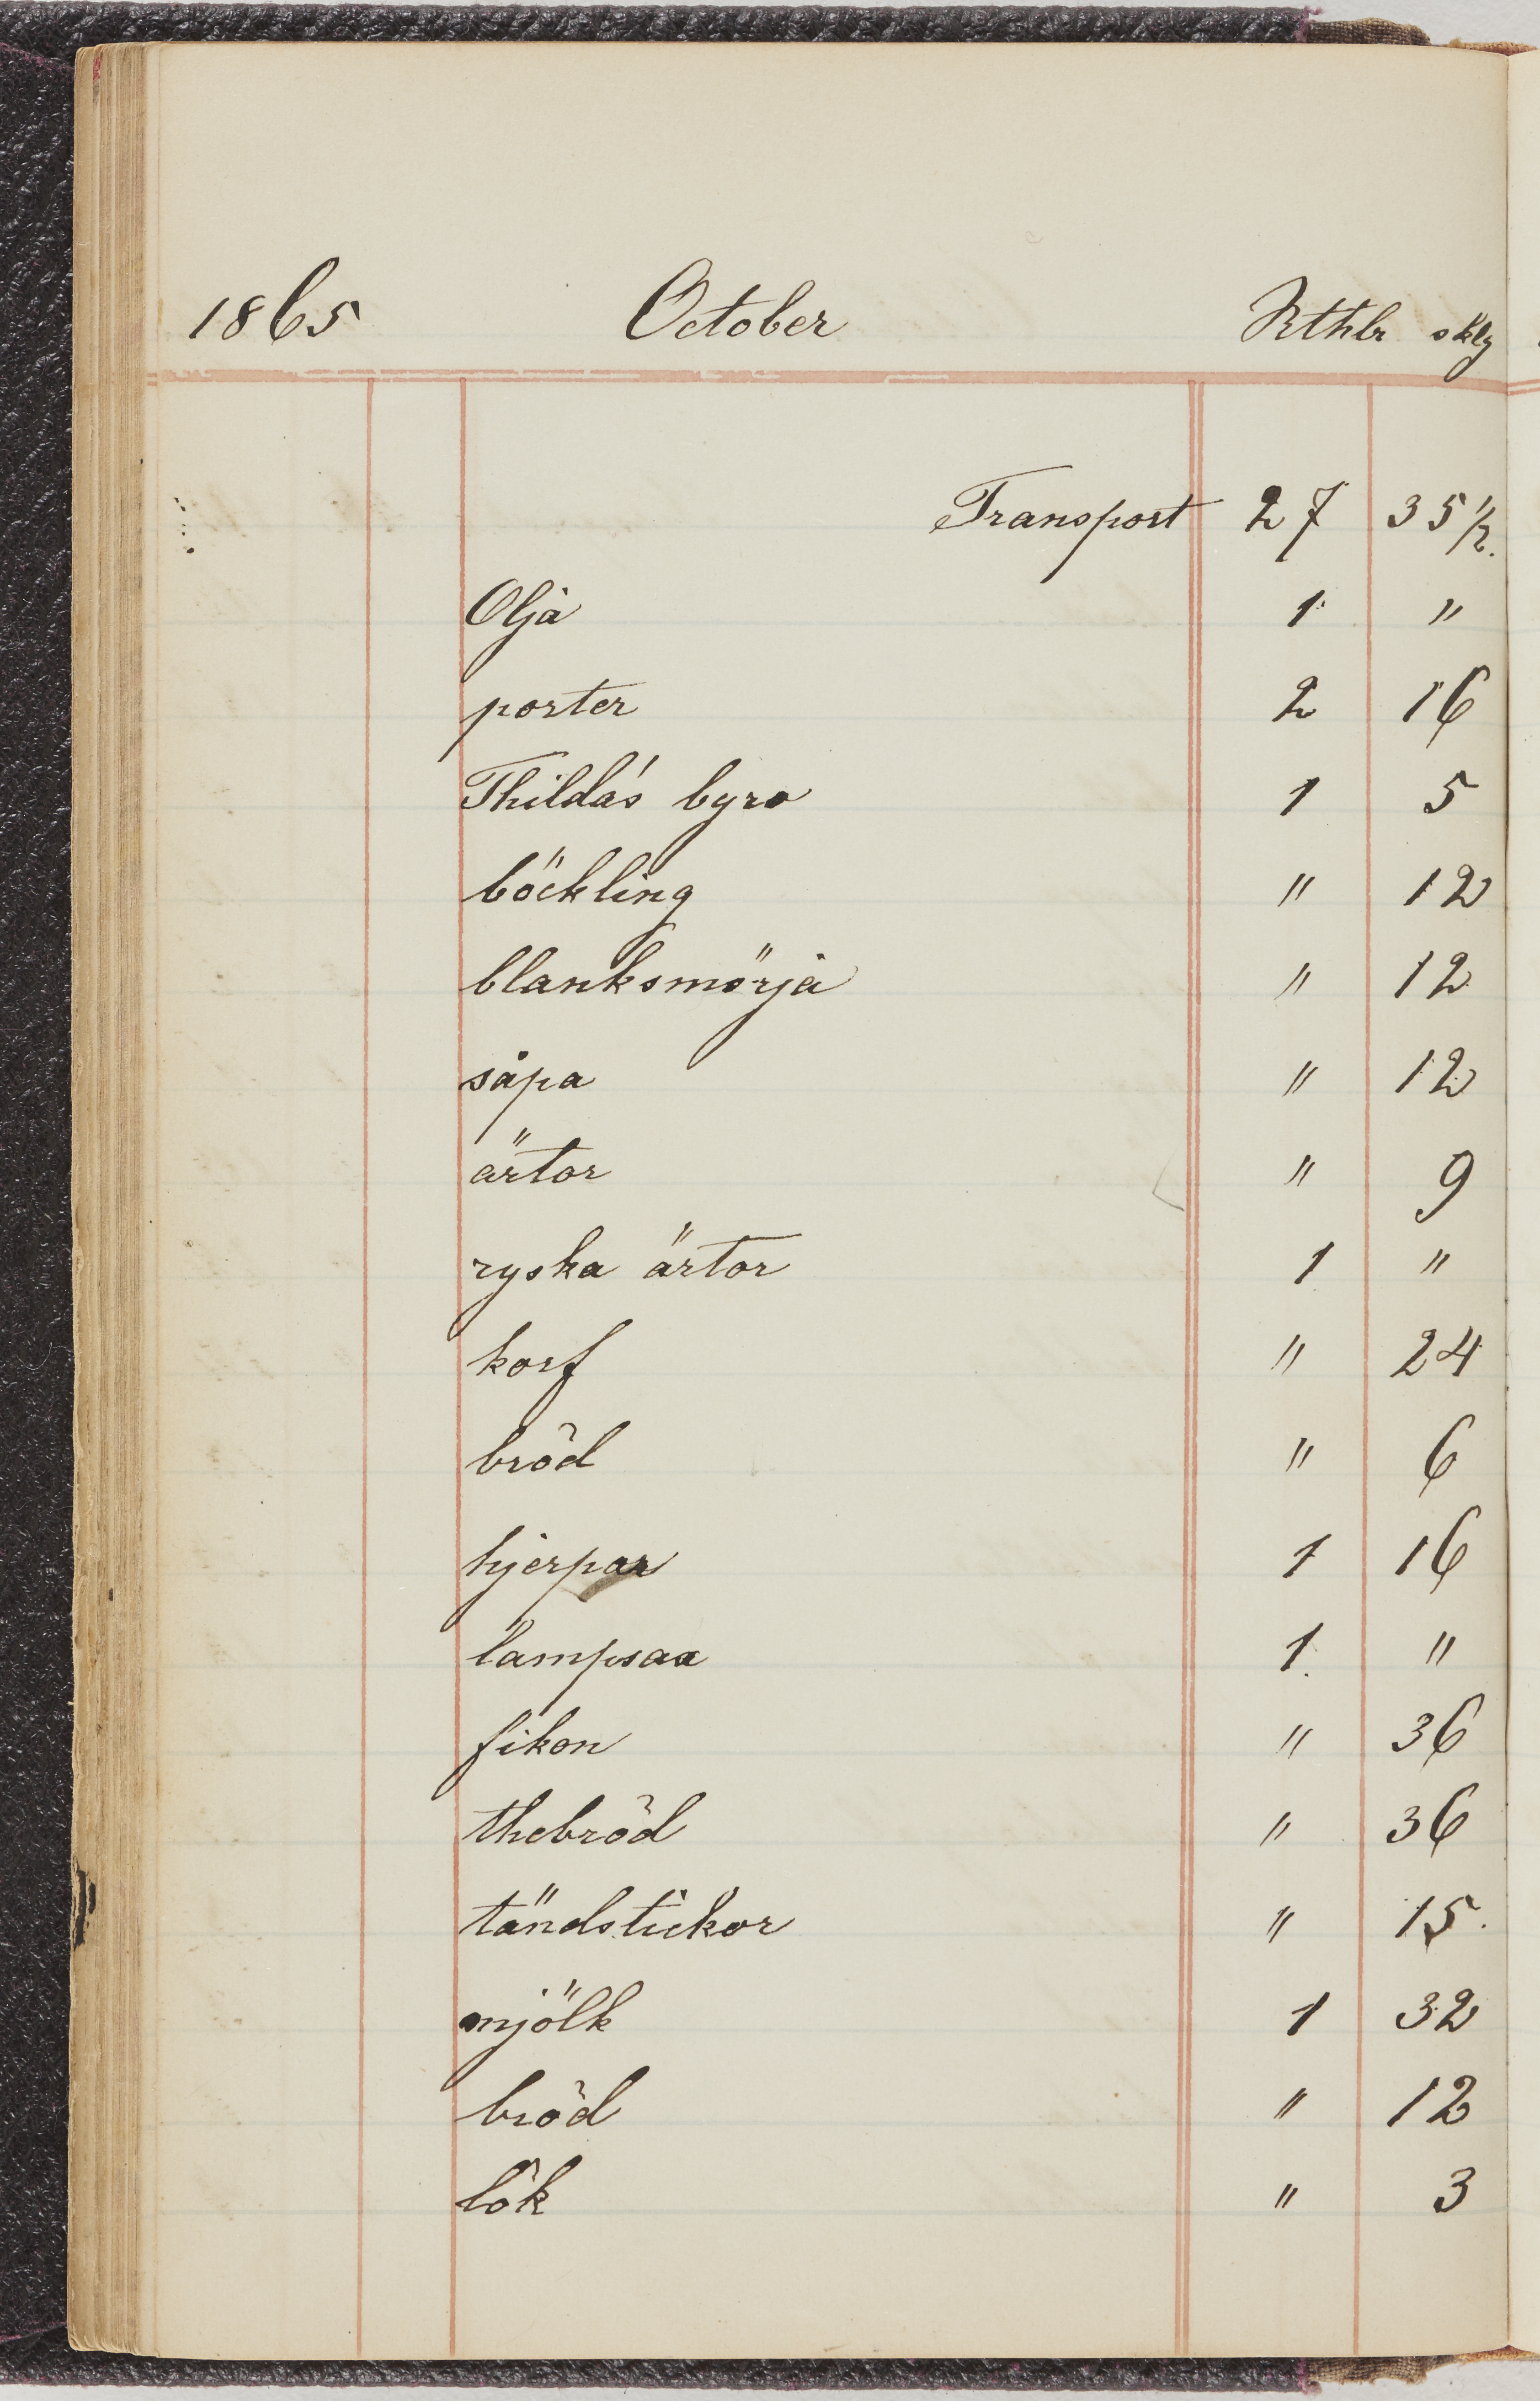 1865 October Rthlr sklg
Transport 27 35 1/2.
Olja 1 "
porter 2 16
Thilda's byro 1 5
böckling " 12
blanksmörja " 12
såpa " 12
ärtor " 9
ryska ärtor 1 "
korf " 24
bröd " 6
hjerpar 1 16
1 "
fikon " 36
thebröd " 36
tändstickor " 15.
mjölk 1 32
bröd " 12
lök " 3